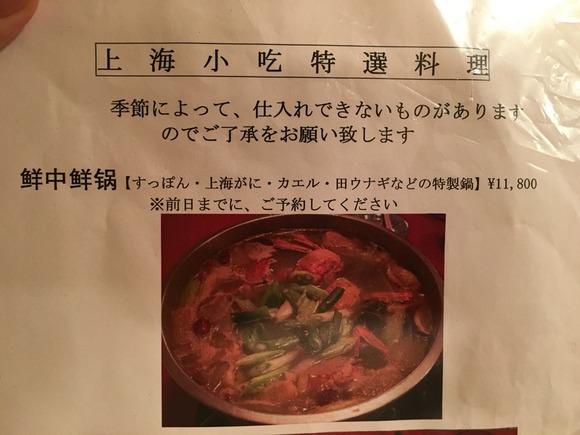 上海小吃特選料理
季節によって、仕入れできないものがあります
のでご了承をお願い致します
鲜中鲜锅【すっぽん・上海がに・カエル・田ウナギなどの特製鍋】¥11,800
※前日までに、ご予約してください